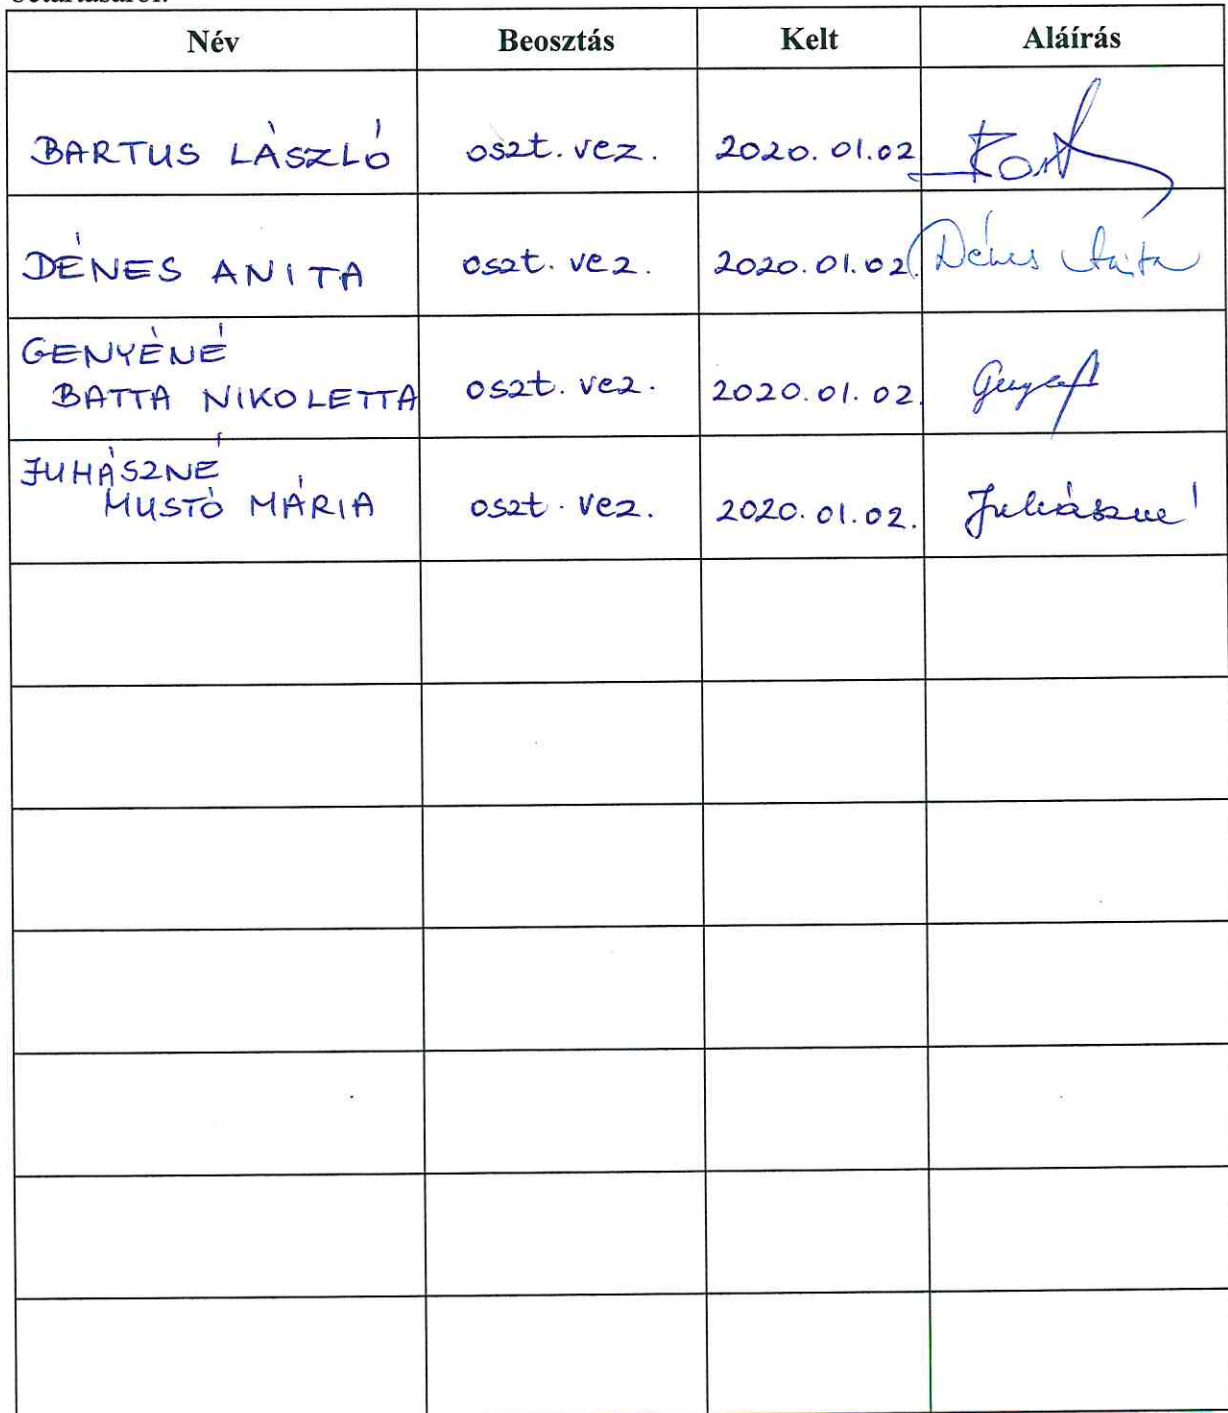 Név Beosztás Kelt Aláírás
BARTUS LÁSZLÓ oszt. vez. 2020. 01.02
DÉNES ANITA oszt. vez. 2020.01.02. Dénes Anita
GENYÉNÉ
BATTA NIKOLETTA oszt. vez. 2020.01.02.
JUHÁSZNÉ
MUSTÓ MÁRIA oszt. vez. 2020.01.02. Juhászné